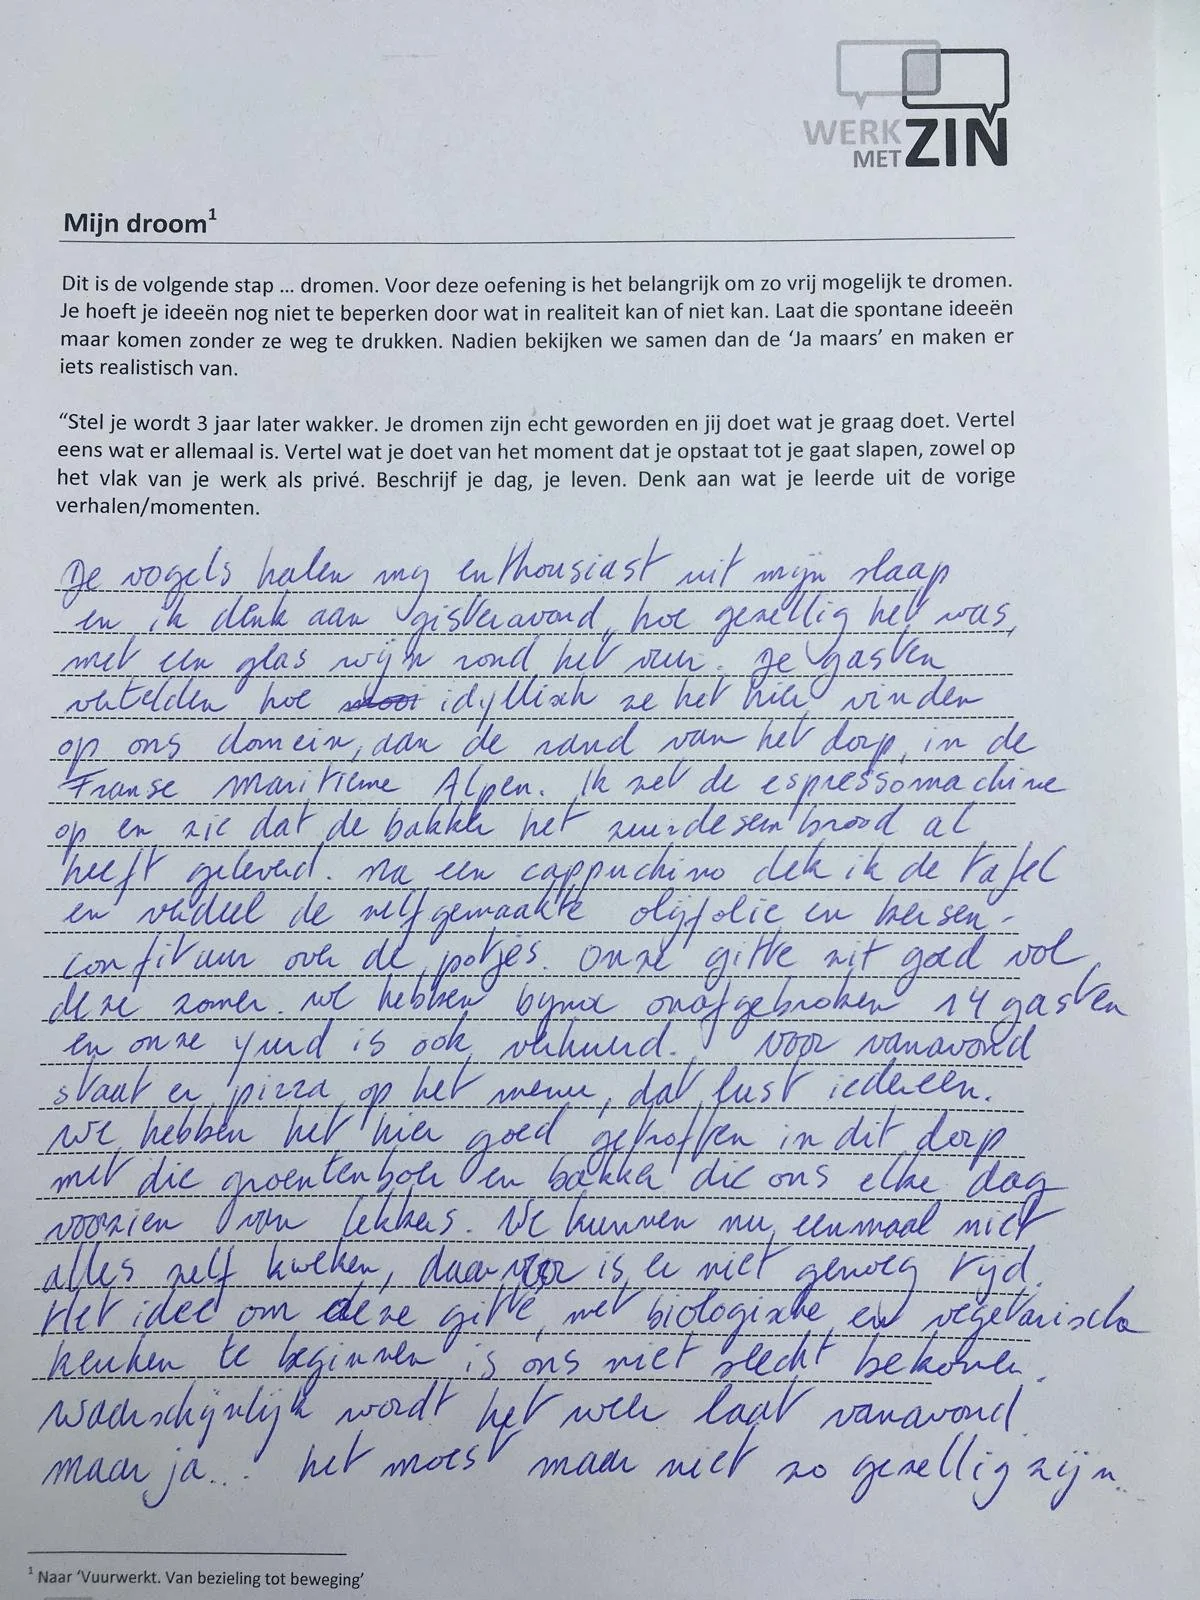 WERK
MET ZIN
Mijn droom¹
Dit is de volgende stap ... dromen. Voor deze oefening is het belangrijk om zo vrij mogelijk te dromen.
Je hoeft je ideeën nog niet te beperken door wat in realiteit kan of niet kan. Laat die spontane ideeën
maar komen zonder ze weg te drukken. Nadien bekijken we samen dan de ‘Ja maars’ en maken er
iets realistisch van.
“Stel je wordt 3 jaar later wakker. Je dromen zijn echt geworden en jij doet wat je graag doet. Vertel
eens wat er allemaal is. Vertel wat je doet van het moment dat je opstaat tot je gaat slapen, zowel op
het vlak van je werk als privé. Beschrijf je dag, je leven. Denk aan wat je leerde uit de vorige
verhalen/momenten.
De vogels halen mij enthousiast uit mijn slaap
en ik denk aan gisteravond, hoe gezellig het was,
met een glas wijn rond het vuur. De gasten
vertelden hoe mooi idyllisch ze het hier vinden
op ons domein, aan de rand van het dorp, in de
Franse Maritieme Alpen. Ik zet de espressomachine
op en zie dat de bakker het zuurdesembrood al
heeft geleverd. Na een cappuchino dek ik de tafel
en verdeel de zelfgemaakte olijfolie en kersen-
confituur over de potjes. Onze gitte zit goed vol
deze zomer. We hebben bijna onafgebroken 14 gasten
en onze yurd is ook verhuurd. Voor vanavond
staat er pizza op het menu, dat lust iedereen.
We hebben het hier goed getroffen in dit dorp
met die groentenboer en bakker die ons elke dag
voorzien van lekkers. We kunnen nu eenmaal niet
alles zelf kweken, daarvoor is er niet genoeg tijd.
Het idee om deze gitte, met biologische en vegetarische
keuken te beginnen is ons niet slecht bekomen.
Waarschijnlijk wordt het weer laat vanavond.
Maar ja... het moest maar niet zo gezellig zijn.
¹ Naar ‘Vuurwerkt. Van bezieling tot beweging’